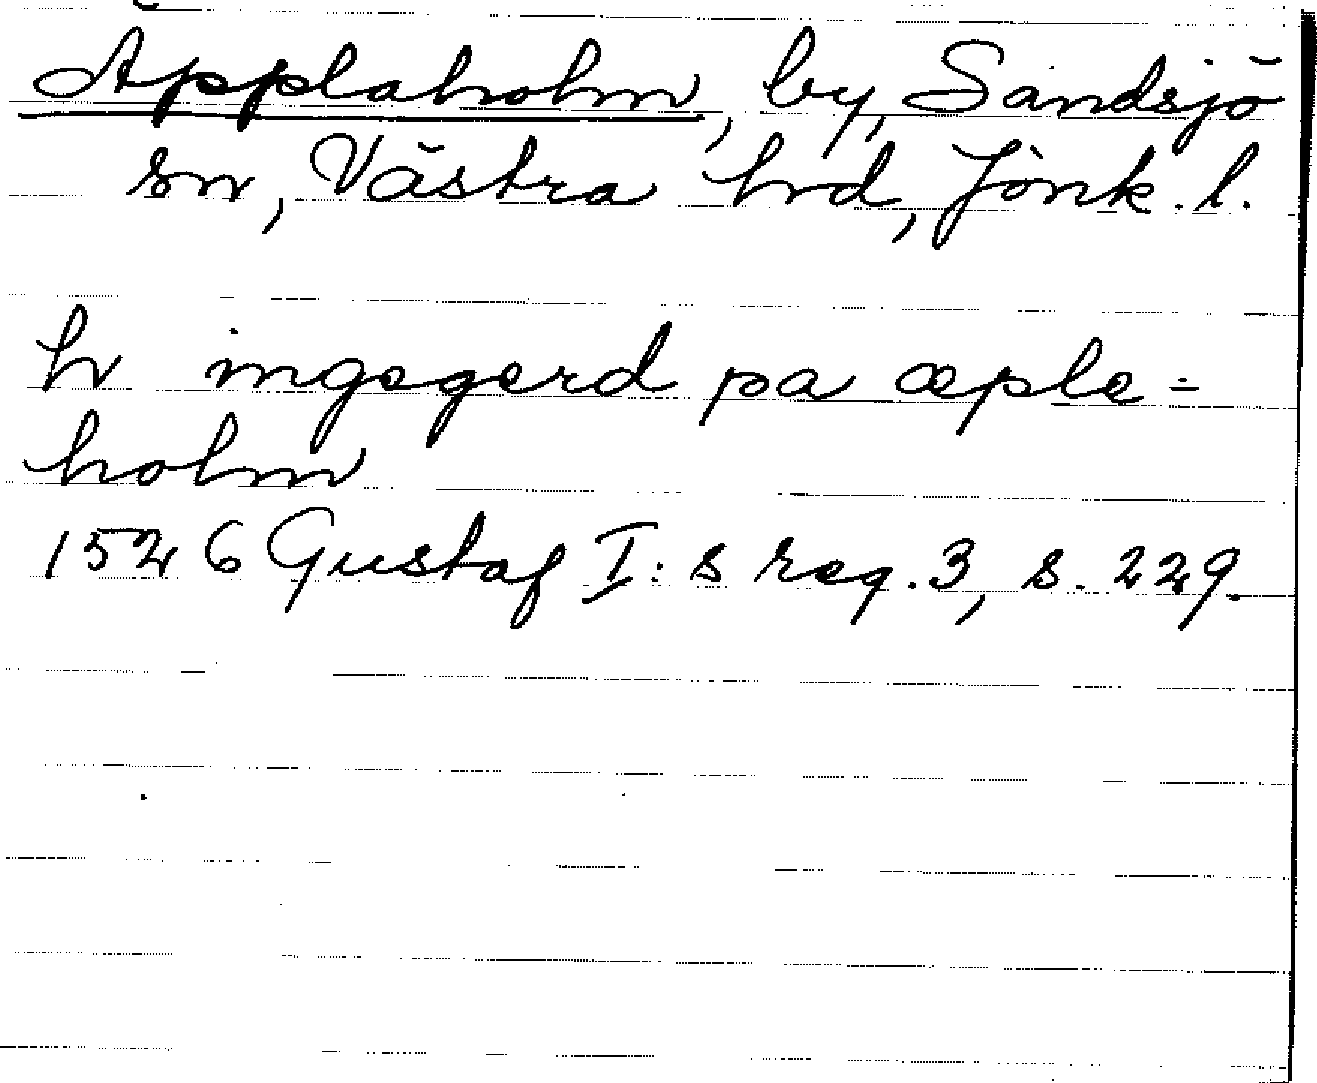 Äpplaholm, by, Sandsjö
sn, Västra hrd, Jönk. l.
h ingegerd pa æple-
holm
1526 Gustaf I:s reg. 3, s. 229.